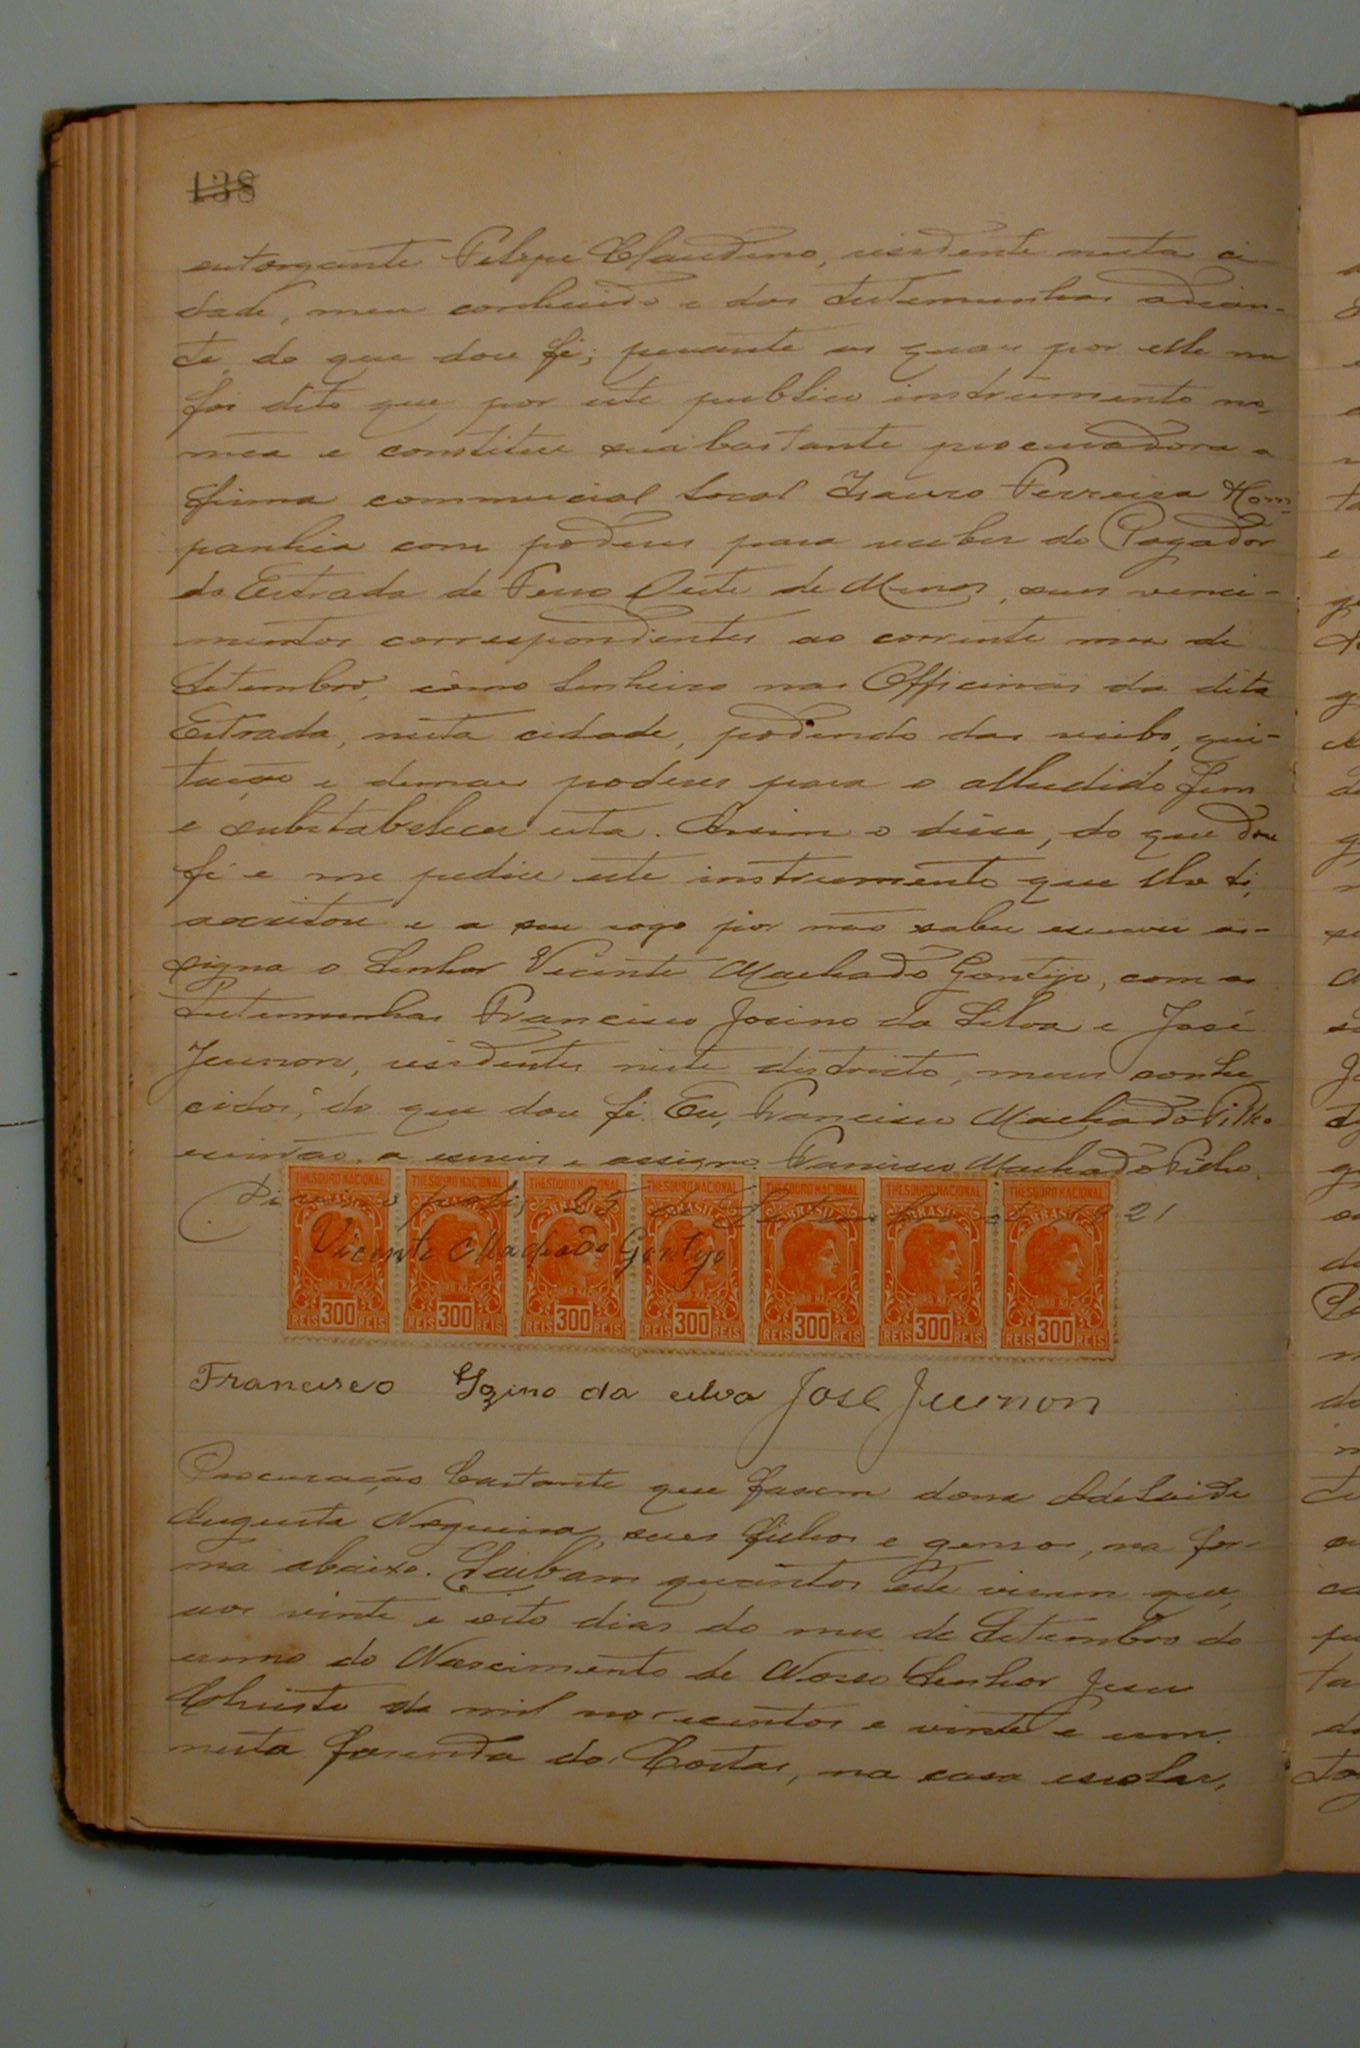 138
outorgante Felipe Claudino, residente nesta ci-
dade, meu conhecido e das testemunhas adian-
te, do que dou fé; perante as quaes por elle me
foi dito que por este publico instrumento no-
mea e constitue sua bastante procuradora a
firma commercial local Isauro Ferreira & Com-
panhia com poderes para receber do Pagador
da Estrada de Ferro Oeste de Minas, seus venci-
mentos correspondentes ao corrente mez de
Setembro, como lenheiro nas Officinas da dita
Estrada, nesta cidade, podendo dar recibo, qui-
tação e demais poderes para o alludido fim
e substabelecer esta. Assim o disse, do que dou
fé e me pediu este instrumento que lhe li,
acceitou e a seu rogo por não saber escrever as-
signa o Senhor Vicente Machado Gontijo, com as
testemunhas Francisco Josino da Silva e José
Jeunon, residentes neste districto, meus conhe-
cidos, do que dou fé. Eu, Francisco Machado Filho
escrivão, a escrevi e assigno. Francisco Machado Filho.
THESOURO NACIONAL THESOURO NACIONAL THESOURO NACIONAL THESOURO NACIONAL THESOURO NACIONAL THESOURO NACIONAL THESOURO NACIONAL
25 de Setembro de 1921
BRASIL BRASIL BRASIL BRASIL BRASIL BRASIL BRASIL
Vicente Machado Gontijo
300 300 300 300 300 300 300
REIS REIS REIS REIS REIS REIS REIS REIS REIS REIS REIS REIS REIS REIS
Francisco Yozino da silva José Jeunon
Procuração bastante que fasem dona Adelaide
Augusta Nogueira, seus filhos e genros, na for-
ma abaixo. Saibam quantos este virem que,
aos vinte e oito dias do mez de Setembro do
anno do Nascimento de Nosso Senhor Jesus
Christo de mil novecentos e vinte e um.
nesta fasenda do Costas, na casa escolar,